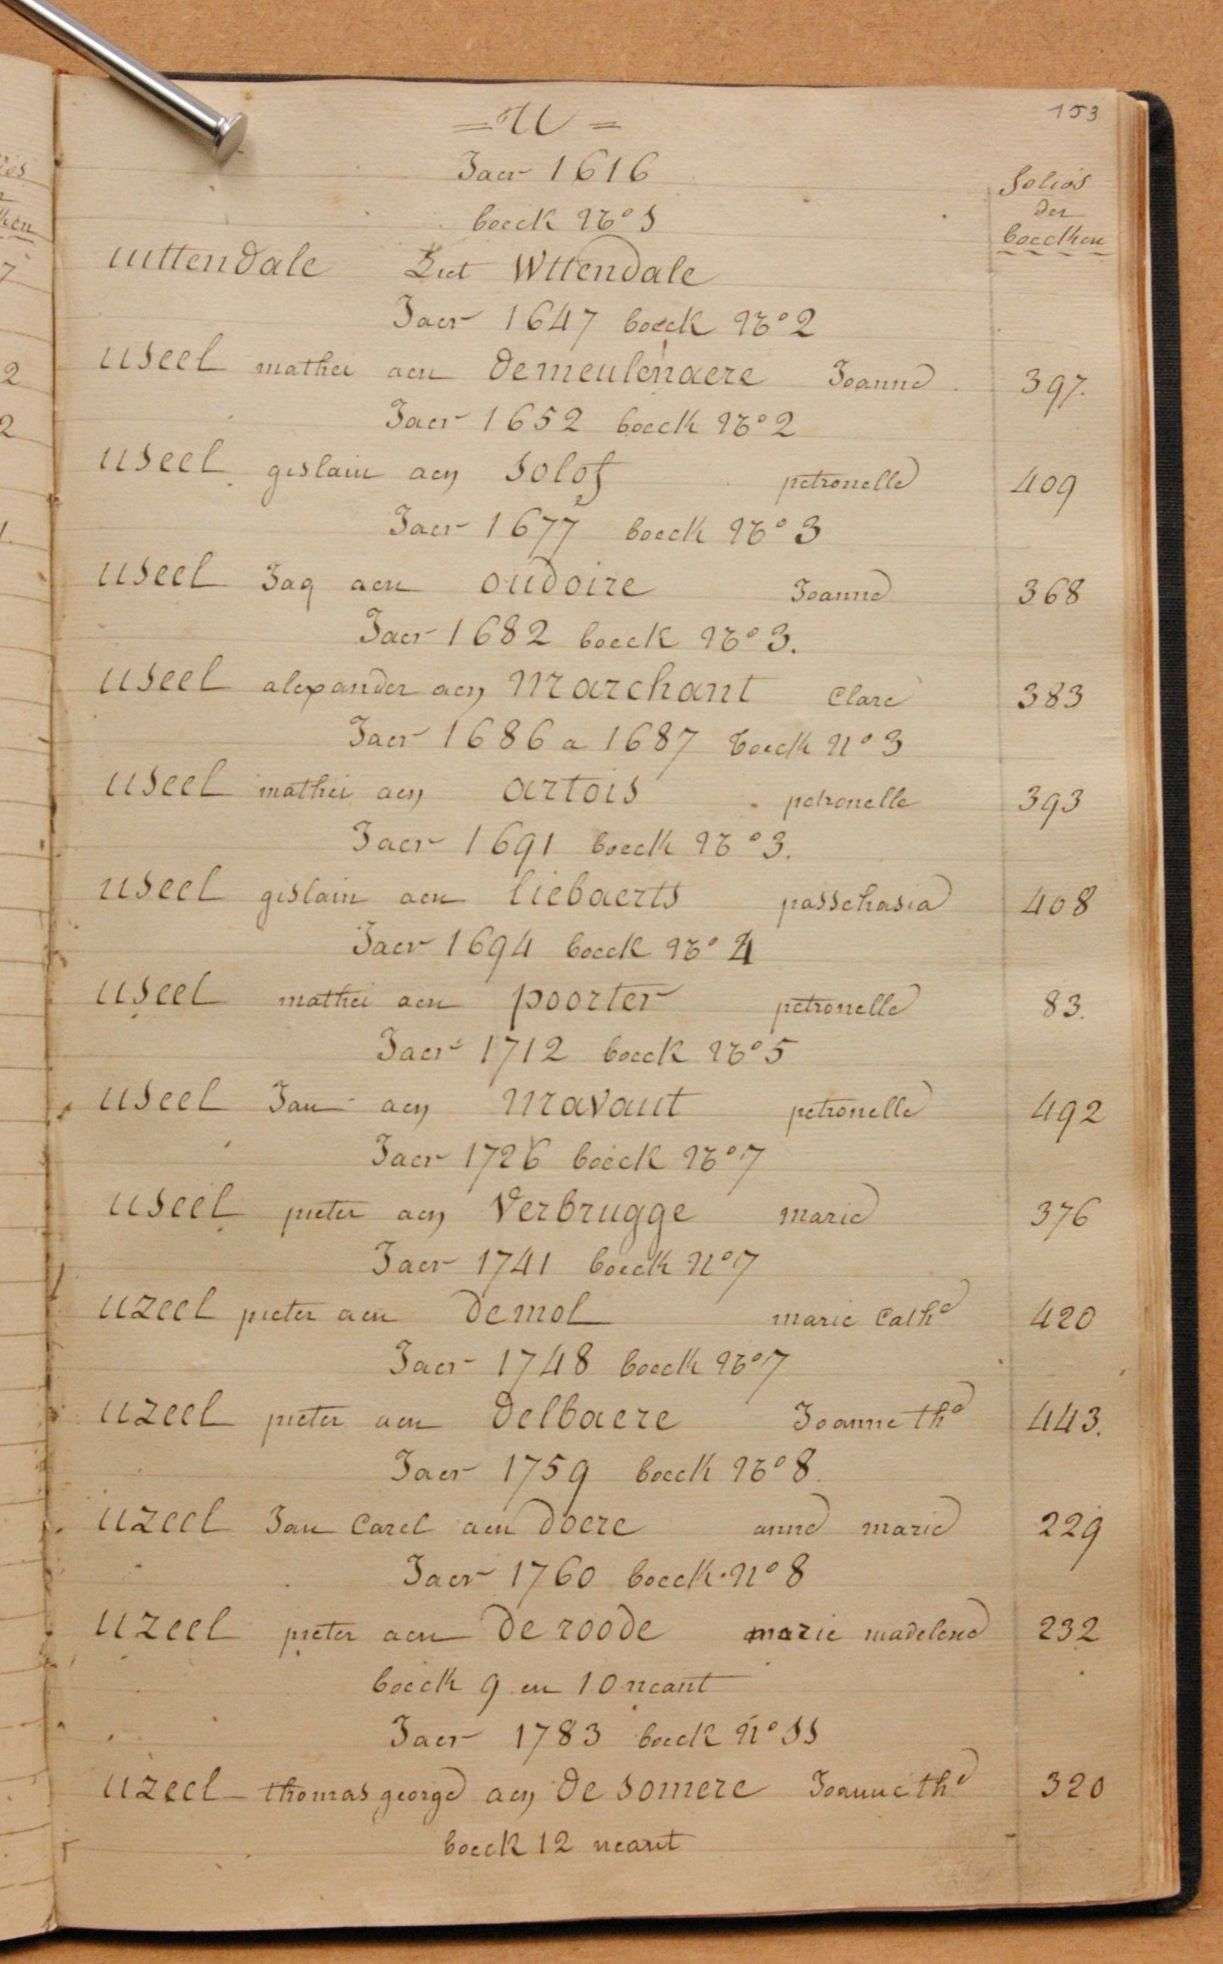 153
= U =
Jaer 1616
folios
der
boecken
boeck No 1
uuttendale Ziet Wttendale
Jaer 1647 boeck No 2
useel mathei aen Demeulenaere Joanne 397.
Jaer 1652 boeck No 2
useel gislain aen solof petronelle 409
Jaer 1677 boeck No 3
useel Jaq aen oudoire Joanne 368
Jaer 1682 boeck No 3.
useel alexander aen Marchant Clare 383
Jaer 1686 a 1687 boeck No 3
useel mathei aen artois petronelle 393
Jaer 1691 boeck No 3.
useel gislain aen liebaerts passchasia 408
Jaer 1694 boeck No 4
useel mathei aen poorter petronelle 83.
Jaer 1712 boeck No 5
useel Jan aen Mavaut petronelle 492
Jaer 1726 boeck No 7
useel pieter aen Verbrugge marie 376
Jaer 1741 boeck No 7
uzeel pieter aen Demol marie Cathe 420
Jaer 1748 boeck No 7
uzeel pieter aen Delbaere Joanne the 443.
Jaer 1759 boeck No 8
uzeel Jan Carel aen Doere anne marie 229
Jaer 1760 boeck No 8
uzeel pieter aen De roode marie madelene 232
boeck 9 en 10 neant
Jaer 1783 boeck No 11
uzeel thomas george aen De somere Joanne the 320
boeck 12 neant